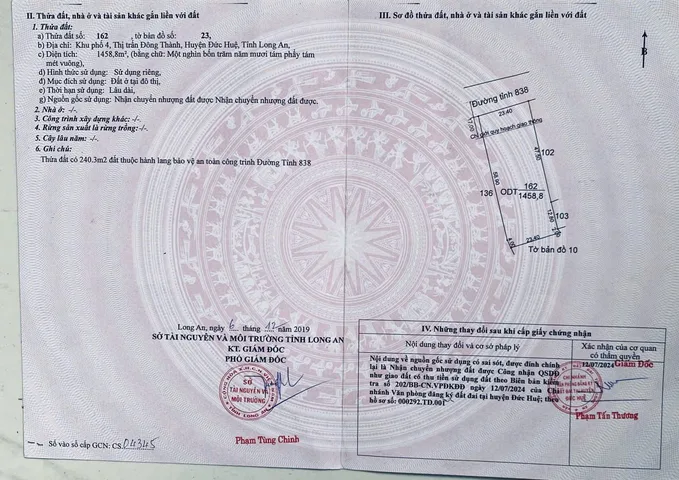 II. Thửa đất, nhà ở và tài sản khác gắn liền với đất
1. Thửa đất:
a) Thửa đất số: 162 , tờ bản đồ số: 23,
b) Địa chỉ: Khu phố 4, Thị trấn Đông Thành, Huyện Đức Huệ, Tỉnh Long An,
c) Diện tích: 1458,8m², (bằng chữ: Một nghìn bốn trăm năm mươi tám phẩy tám
mét vuông),
d) Hình thức sử dụng: Sử dụng riêng,
đ) Mục đích sử dụng: Đất ở tại đô thị,
e) Thời hạn sử dụng: Lâu dài,
g) Nguồn gốc sử dụng: Nhận chuyển nhượng đất được Nhận chuyển nhượng đất được.
2. Nhà ở: -/-.
3. Công trình xây dựng khác: -/-.
4. Rừng sản xuất là rừng trồng: -/-.
5. Cây lâu năm: -/-.
6. Ghi chú:
Thửa đất có 240.3m2 đất thuộc hành lang bảo vệ an toàn công trình Đường Tỉnh 838
Long An, ngày 6 tháng 12 năm 2019
SỞ TÀI NGUYÊN VÀ MÔI TRƯỜNG TỈNH LONG AN
KT. GIÁM ĐỐC
PHÓ GIÁM ĐỐC
SỞ
TÀI NGUYÊN VÀ
MÔI TRƯỜNG
Phạm Tùng Chinh
Số vào sổ cấp GCN: CS 04345
III. Sơ đồ thửa đất, nhà ở và tài sản khác gắn liền với đất
B
Đường tỉnh 838
23.40
17.00
Chỉ giới quy hoạch giao thông
47.80
102
58.50
136
ODT
162
1458,8
12.80
103
4.00
23.40
Tờ bản đồ 10
IV. Những thay đổi sau khi cấp giấy chứng nhận
Nội dung thay đổi và cơ sở pháp lý
Xác nhận của cơ quan
có thẩm quyền
Nội dung về nguồn gốc sử dụng có sai sót, được đính chính
lại là Nhận chuyển nhượng đất được Công nhận QSDĐ
như giao đất có thu tiền sử dụng đất theo Biên bản kiểm
tra số 202/BB-CN.VPĐKĐĐ ngày 12/07/2024 của Chi
nhánh Văn phòng đăng ký đất đai tại huyện Đức Huệ; theo
hồ sơ số: 000292.TD.001
12/07/2024 Giám Đốc
ĐỨC HUỆ
Phạm Tấn Thương